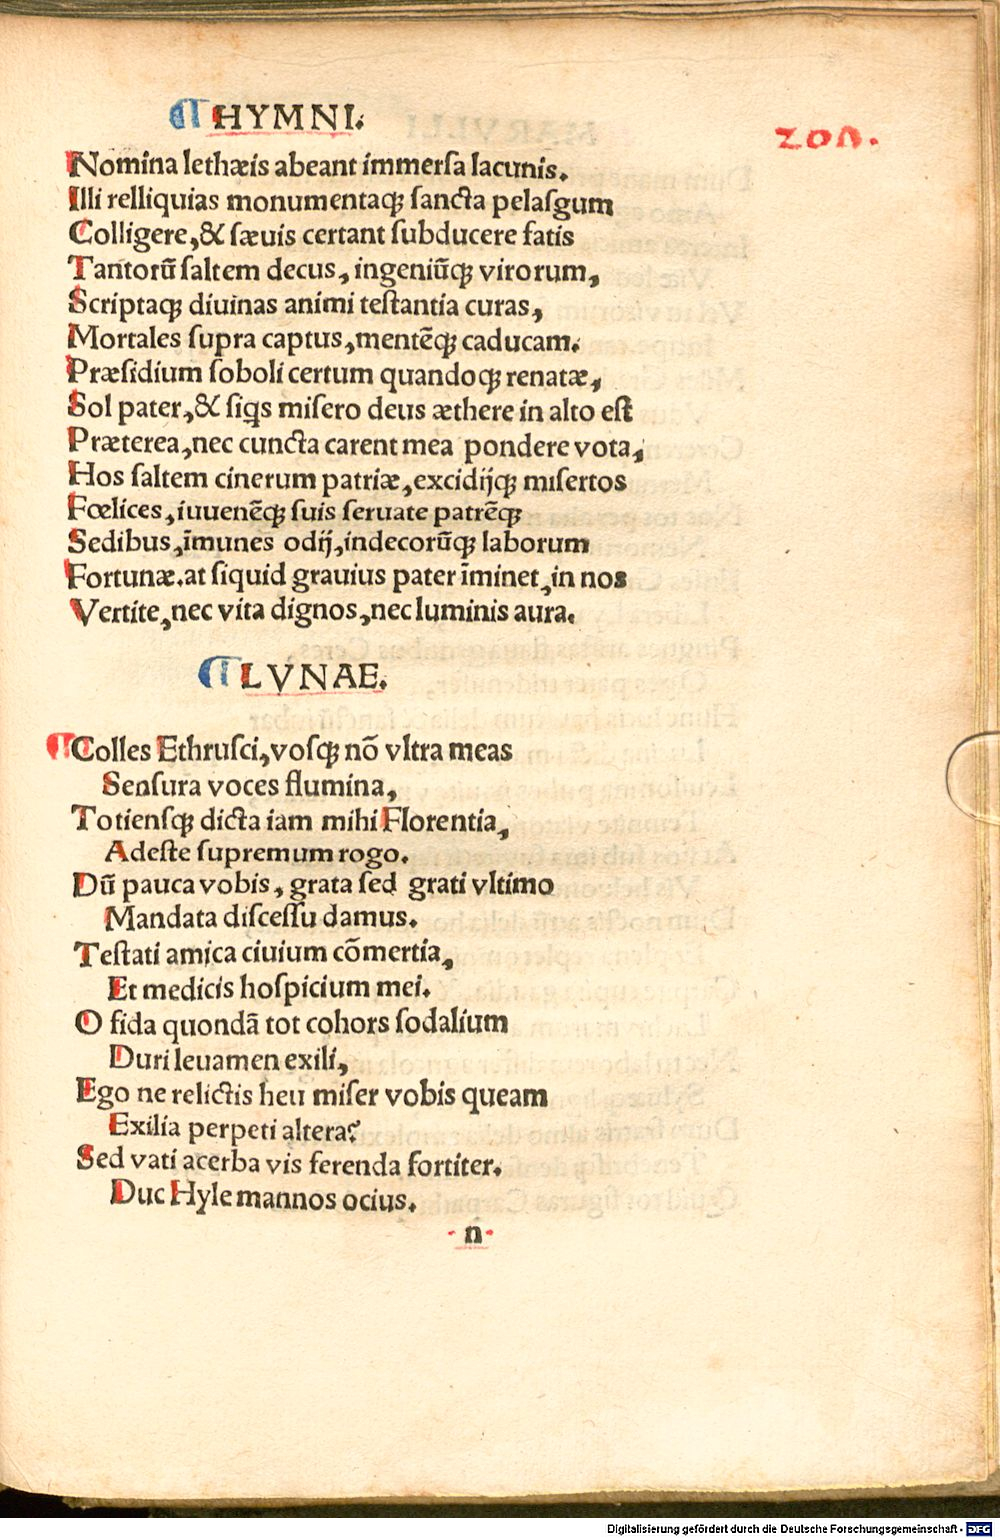 ¶ HYMNI.
201.
Nomina lethæis abeant immersa lacunis.
Illi relliquias monumentaqꝫ sancta pelasgum
Colligere, & sæuis certant subducere fatis
Tantorū saltem decus, ingeniūqꝫ virorum,
Scriptaqꝫ diuinas animi testantia curas,
Mortales supra captus, mentēqꝫ caducam.
Præsidium soboli certum quandoqꝫ renatæ,
Sol pater, & siqs misero deus æthere in alto est
Præterea, nec cuncta carent mea pondere vota,
Hos saltem cinerum patriæ, excidijqꝫ misertos
Fœlices, iuuenēqꝫ suis seruate patrēqꝫ
Sedibus, īmunes odij, indecorūqꝫ laborum
Fortunæ. at siquid grauius pater īminet, in nos
Vertite, nec vita dignos, nec luminis aura.
¶ LVNAE.
¶ Colles Ethrusci, vosqꝫ nō vltra meas
Sensura voces flumina,
Totiensqꝫ dicta iam mihi Florentia,
Adeste supremum rogo.
Dū pauca vobis, grata sed grati vltimo
Mandata discessu damus.
Testati amica ciuium cōmertia,
Et medicis hospicium mei.
O fida quondā tot cohors sodalium
Duri leuamen exili,
Ego ne relictis heu miser vobis queam
Exilia perpeti altera?
Sed vati acerba vis ferenda fortiter.
Duc Hyle mannos ocius.
n
Digitalisierung gefördert durch die Deutsche Forschungsgemeinschaft - DFG